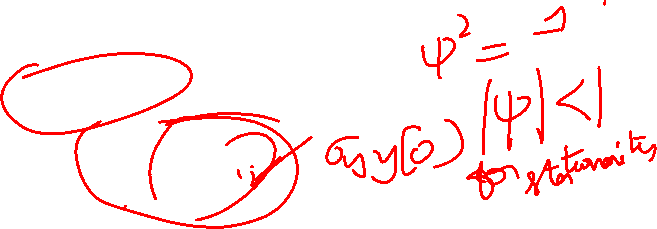 ψ² = 1
|ψ| < 1
y(0)
for stationarity